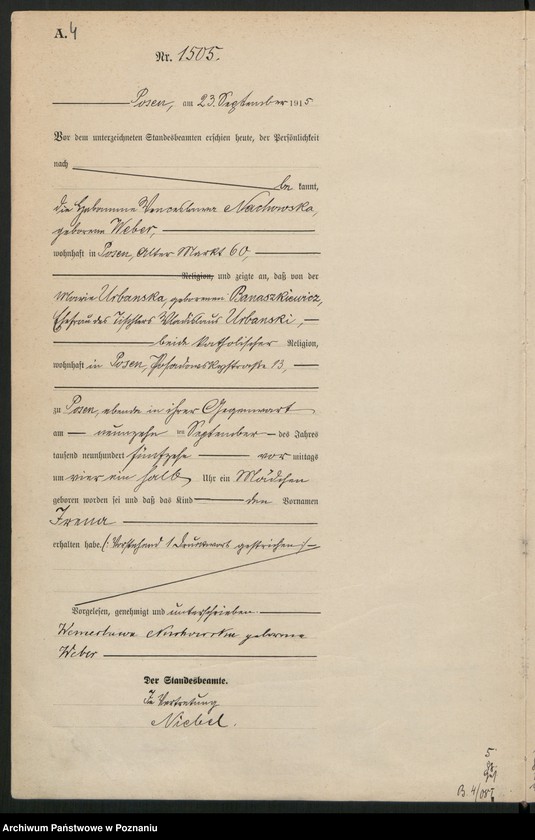 A. 4
Nr. 1505.
Posen, am 23. September 1915
Vor dem unterzeichneten Standesbeamten erschien heute, der Persönlichkeit
nach
be kannt,
die Hebamme Nachowska,
geborene Weber,
wohnhaft in Posen, Alter Markt 60,
Religion, und zeigte an, daß von der
Marie Urbanska, geborenen Banaszkiewicz,
Ehefrau des Tischlers Vladislaus Urbanski,
beide katholischer Religion,
wohnhaft in Posen, Posadowskystraße 13,
zu Posen, ebenda in ihrer Gegenwart
am neunzehn ten September des Jahres
tausend neunhundert fünfzehn vor mittags
um vier ein halb Uhr ein Mädchen
geboren worden sei und daß das Kind den Vornamen
Irena
erhalten habe. (: Vorstehend 1 Druckwort gestrichen :)
Vorgelesen, genehmigt und unterschrieben.
geborene
Weber
Der Standesbeamte.
In Vertretung
Niebel.
5
B. 4/08
Archiwum Państwowe w Poznaniu